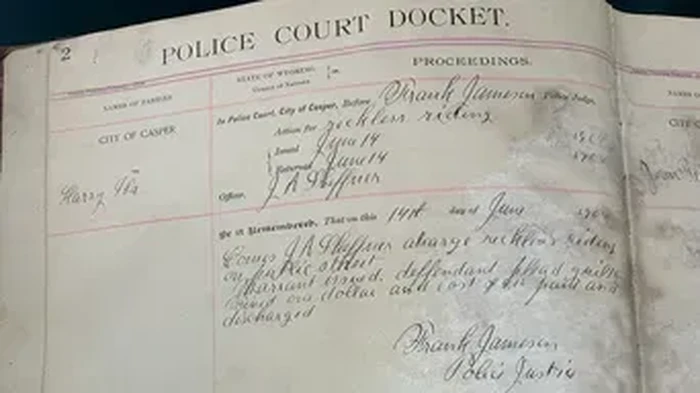 2
POLICE COURT DOCKET.
NAMES OF PARTIES
STATE OF WYOMING,
County of Natrona
ss.
PROCEEDINGS.
CITY OF CASPER
Harry
In Police Court, City of Casper, Before Frank Jameson Police Judge.
Action for reckless riding
Issued June 14
Returned June 14
Officer, J A Sheffner
Be it Remembered, That on this 14th day of June
Comes J A Sheffner charge reckless riding
on public street
warrant issued. deffendant plead guilty
fined one dollar and cost & paid and
discharged
Frank Jameson
Police Justice